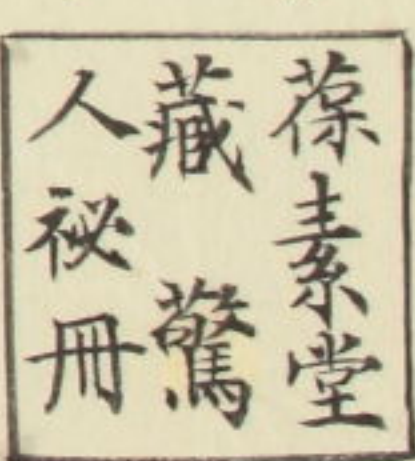 葆素堂
藏驚
人祕冊